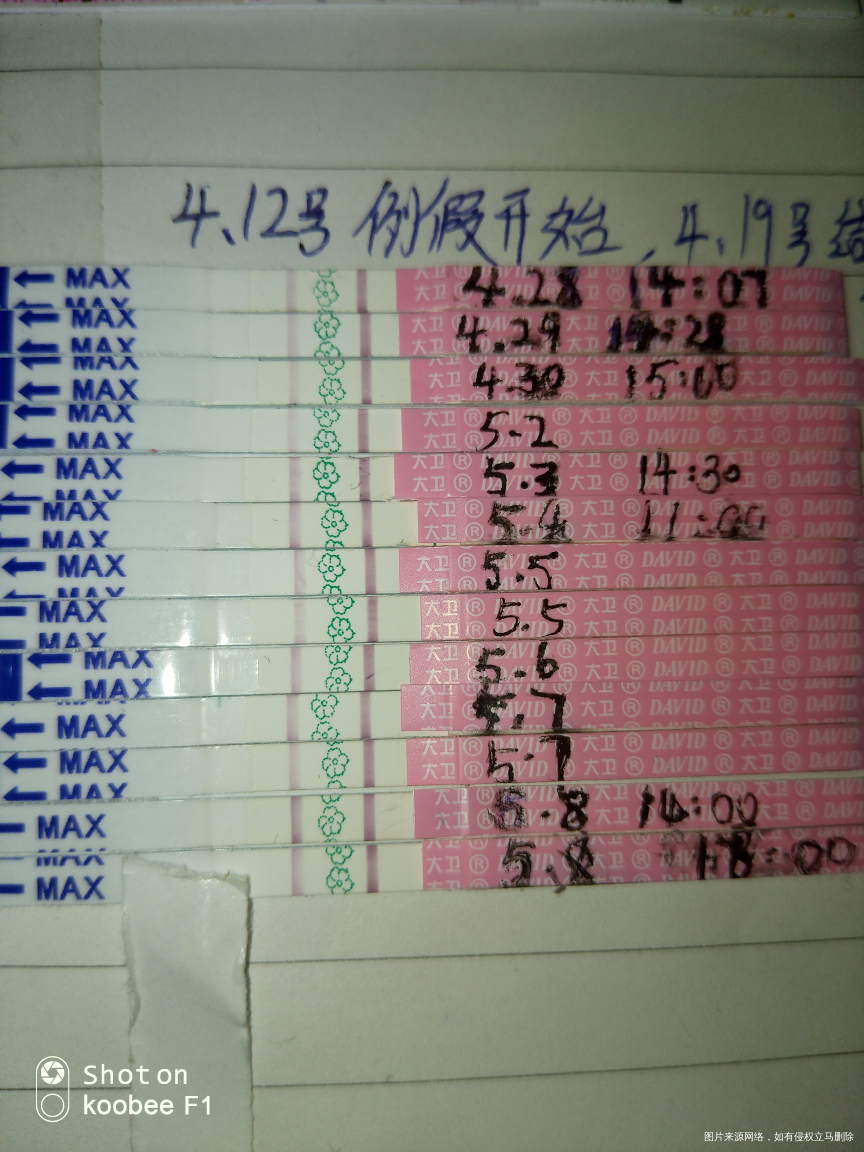 4.12号 例假开始，4.19号 结
← MAX 大卫 ® DAVID 4.28 14:07
← MAX 4.29 14:28
← MAX 4.30 15:00
← MAX 5.2
← MAX 5.3 14:30
← MAX 5.4 11:00
← MAX 大卫 ® DAVID ® 大卫 ® DAVID 5.5
MAX 大卫 ® DAVID ® 大卫 ® DAVID 5.5
← MAX 大卫 ® DAVID 5.6
← MAX 大卫 ® DAVID 5.7
← MAX 大卫 ® DAVID 5.7
MAX 大卫 ® DAVID 5.8 14:00
MAX 大卫 ® DAVID 5.8 18:00
Shot on
koobee F1
图片来源网络，如有侵权立马删除